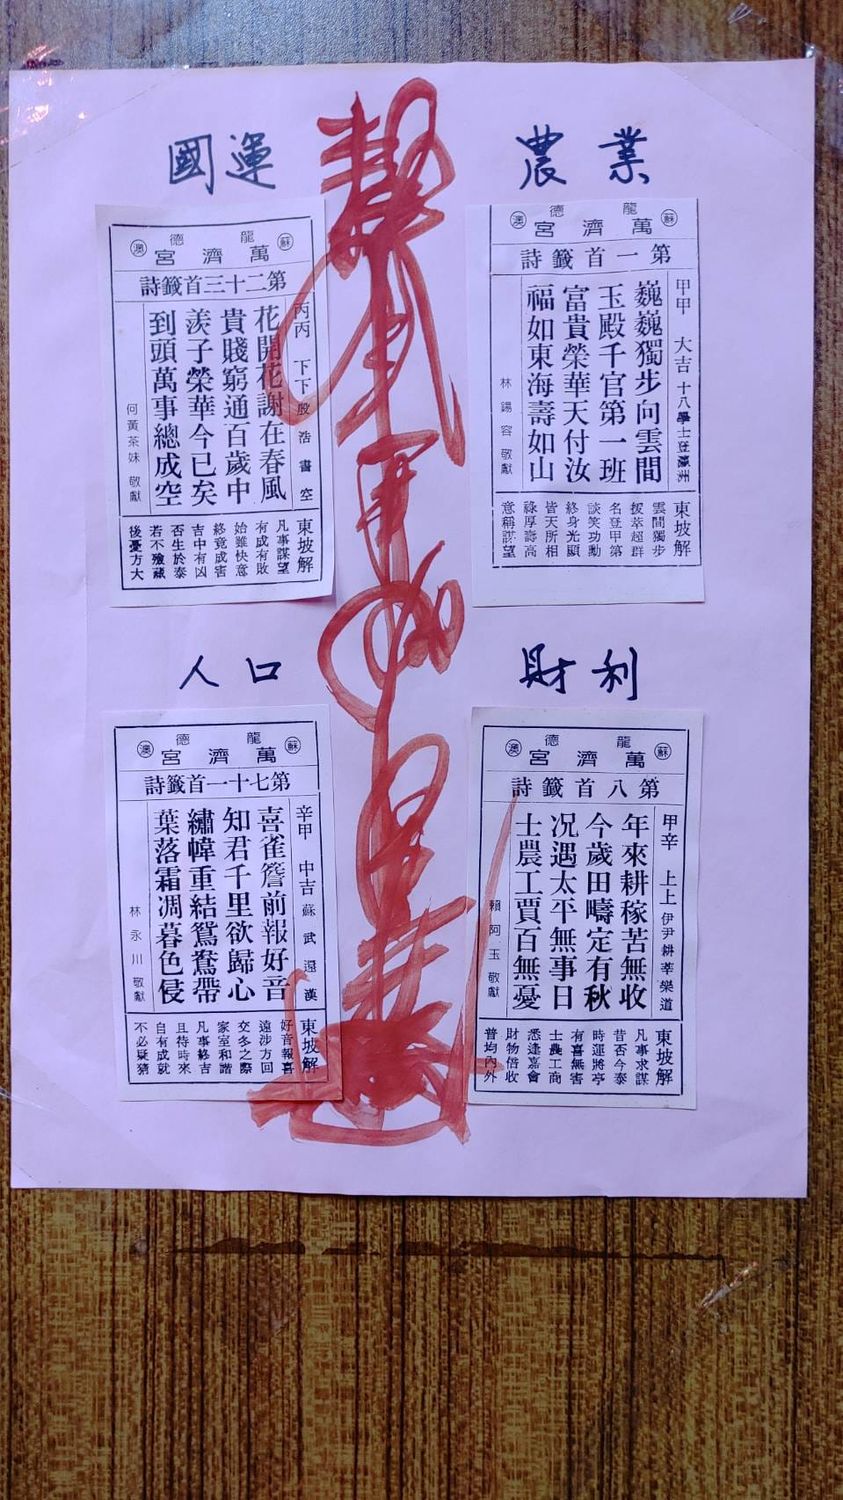 農業
蘇 龍德 澳
萬濟宮
第一首籤詩
甲甲 大吉 十八學士登瀛洲
巍巍獨步向雲間
玉殿千官第一班
富貴榮華天付汝
福如東海壽如山
林錫容敬獻
東坡解
雲間獨步
拔萃超群
名登甲第
談笑功勳
終身光顯
皆天所相
祿厚壽高
意稱謀望
國運
蘇 龍德 澳
萬濟宮
第二十三首籤詩
丙丙 下下 殷浩書空
花開花謝在春風
貴賤窮通百歲中
羨子榮華今已矣
到頭萬事總成空
何黃茶妹敬獻
東坡解
凡事謀望
有成有敗
始雖快意
終竟成害
吉中有凶
否生於泰
若不殮藏
後憂方大
財利
蘇 龍德 澳
萬濟宮
第八首籤詩
甲辛 上上 伊尹耕莘樂道
年來耕稼苦無收
今歲田疇定有秋
況遇太平無事日
士農工賈百無憂
賴阿玉敬獻
東坡解
凡事求謀
昔否今泰
時運將亭
有喜無害
士農工商
悉逢嘉會
財物倍收
普均內外
人口
蘇 龍德 澳
萬濟宮
第七十一首籤詩
辛甲 中吉 蘇武還漢
喜雀簷前報好音
知君千里欲歸心
繡幃重結鴛鴦帶
葉落霜凋暮色侵
林永川敬獻
東坡解
好音報喜
遠涉方回
交冬之際
家室和諧
凡事終吉
且待時來
自有成就
不必疑猜